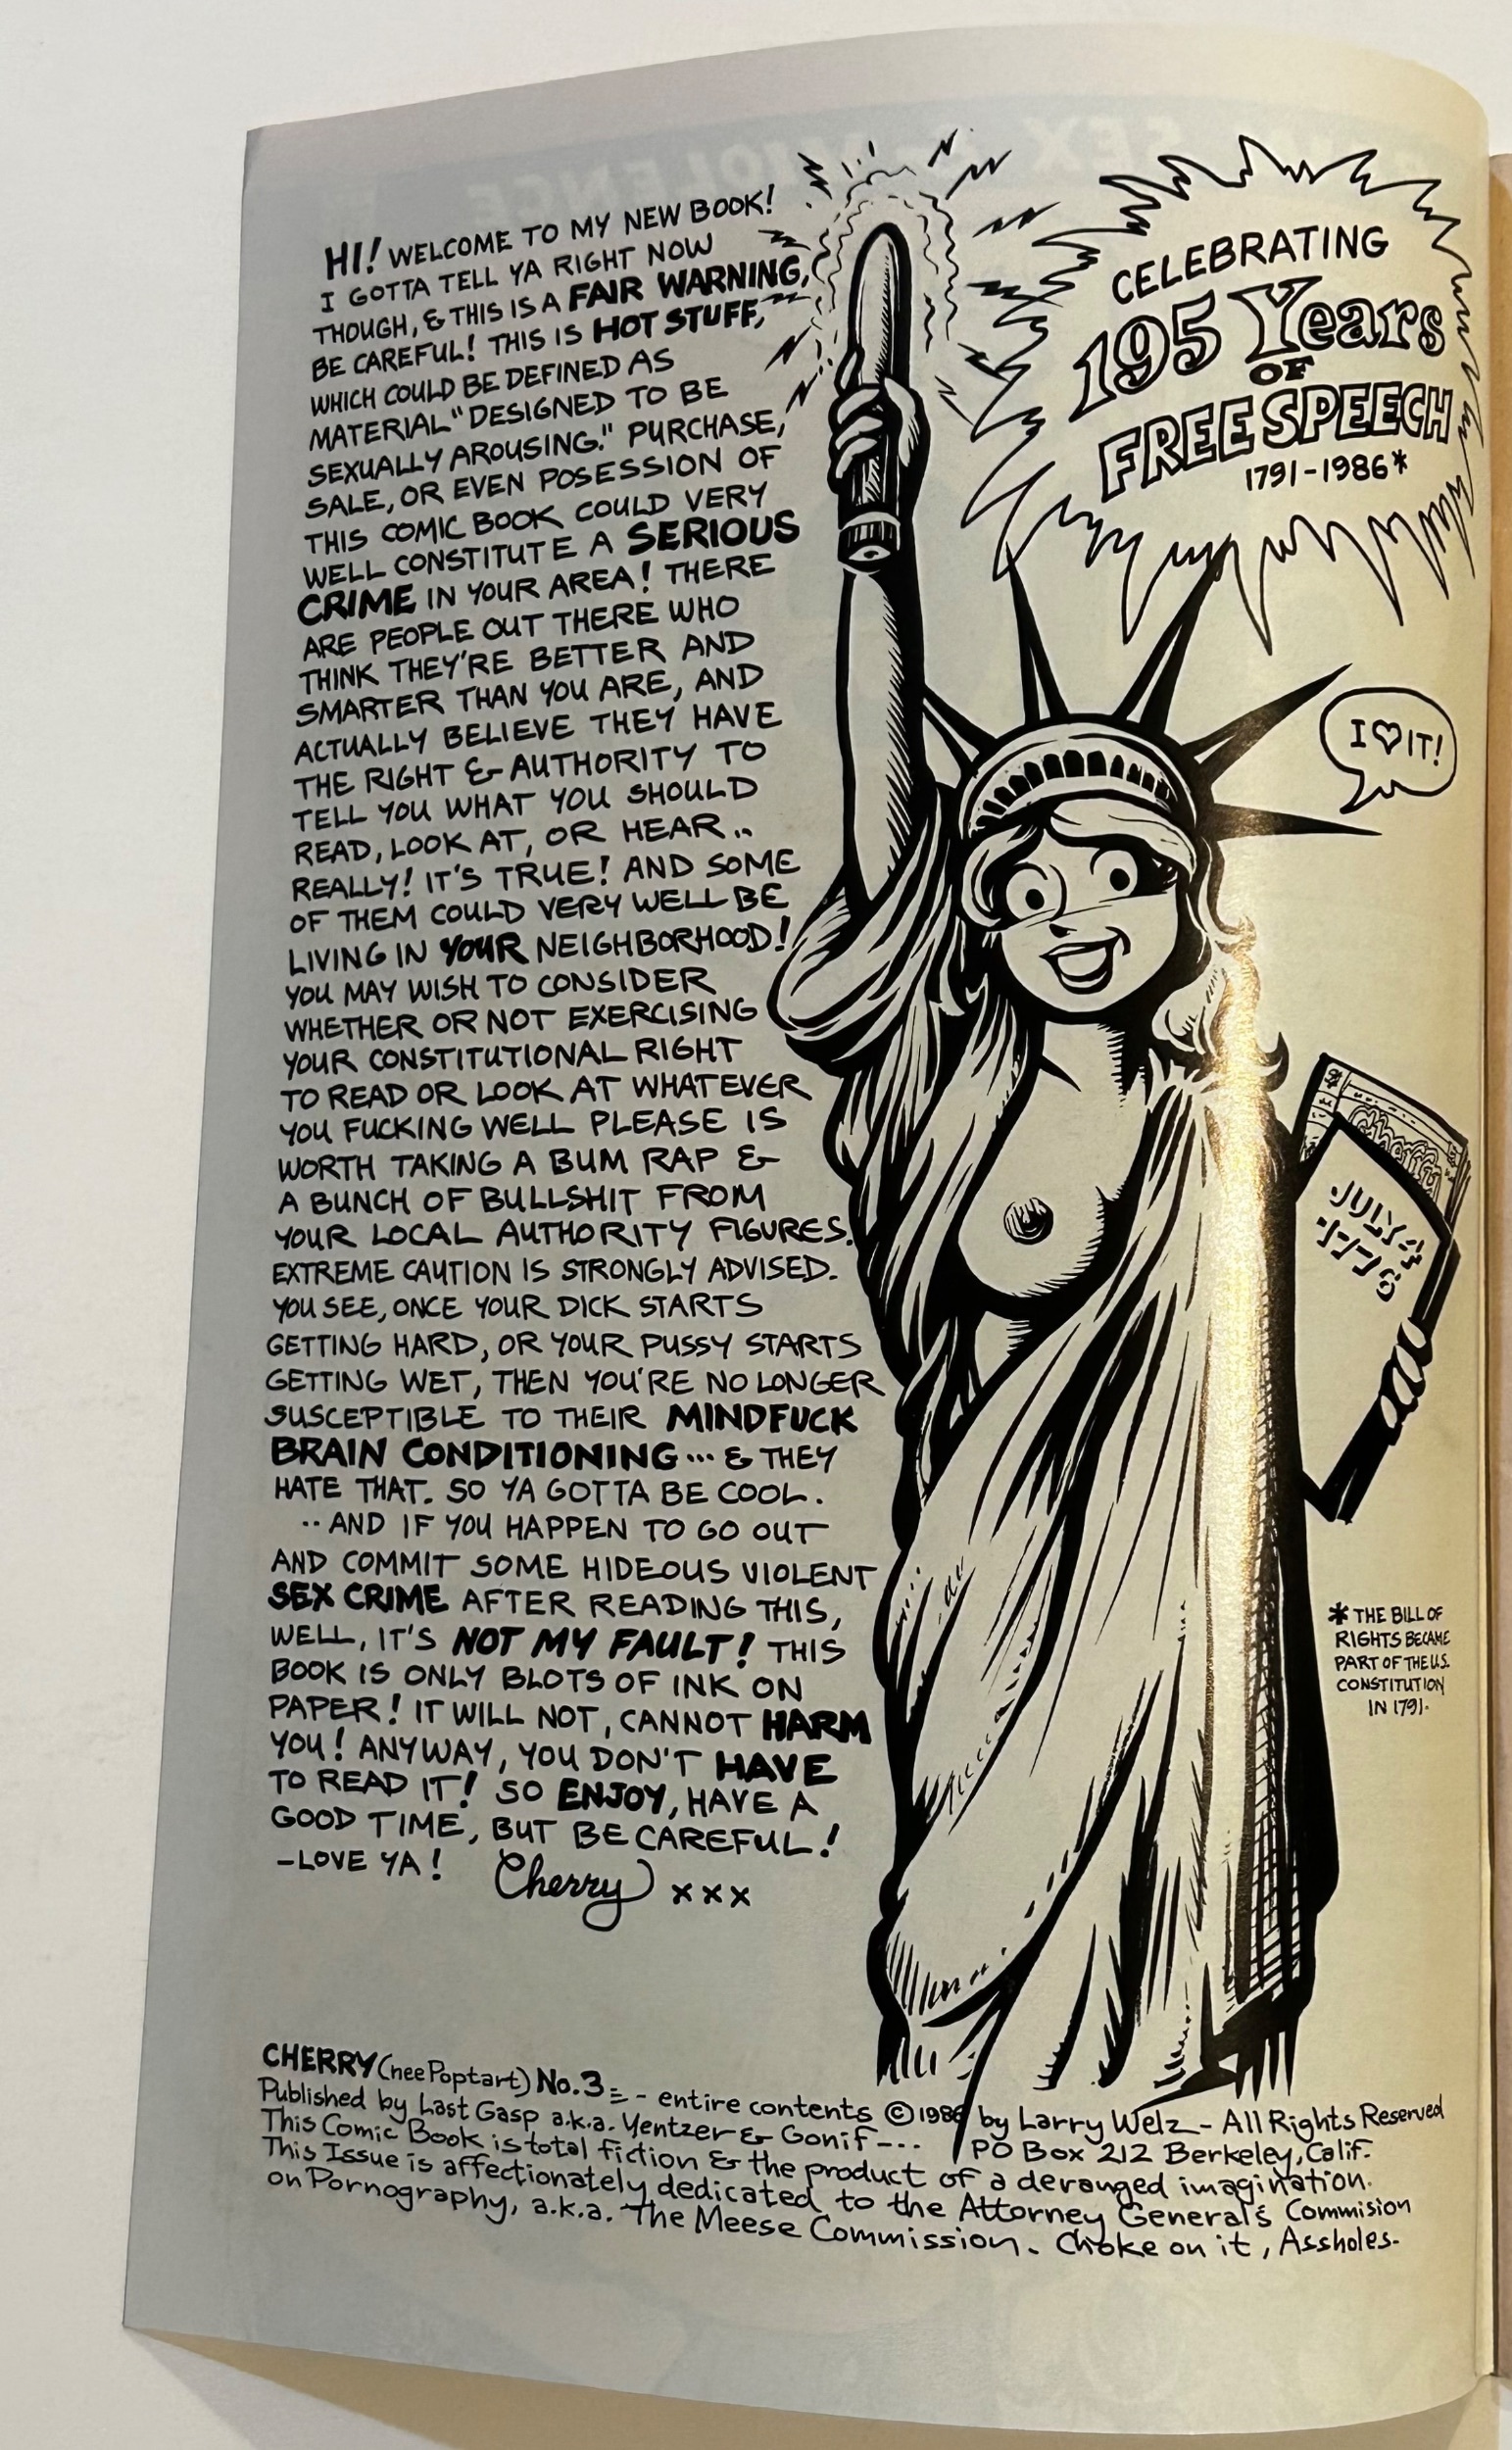 HI! WELCOME TO MY NEW BOOK!
I GOTTA TELL YA RIGHT NOW
THOUGH, & THIS IS A FAIR WARNING,
BE CAREFUL! THIS IS HOT STUFF,
WHICH COULD BE DEFINED AS
MATERIAL "DESIGNED TO BE
SEXUALLY AROUSING." PURCHASE,
SALE, OR EVEN POSESSION OF
THIS COMIC BOOK COULD VERY
WELL CONSTITUTE A SERIOUS
CRIME IN YOUR AREA! THERE
ARE PEOPLE OUT THERE WHO
THINK THEY'RE BETTER AND
SMARTER THAN YOU ARE, AND
ACTUALLY BELIEVE THEY HAVE
THE RIGHT & AUTHORITY TO
TELL YOU WHAT YOU SHOULD
READ, LOOK AT, OR HEAR..
REALLY! IT'S TRUE! AND SOME
OF THEM COULD VERY WELL BE
LIVING IN YOUR NEIGHBORHOOD!
YOU MAY WISH TO CONSIDER
WHETHER OR NOT EXERCISING
YOUR CONSTITUTIONAL RIGHT
TO READ OR LOOK AT WHATEVER
YOU FUCKING WELL PLEASE IS
WORTH TAKING A BUM RAP &
A BUNCH OF BULLSHIT FROM
YOUR LOCAL AUTHORITY FIGURES.
EXTREME CAUTION IS STRONGLY ADVISED.
YOU SEE, ONCE YOUR DICK STARTS
GETTING HARD, OR YOUR PUSSY STARTS
GETTING WET, THEN YOU'RE NO LONGER
SUSCEPTIBLE TO THEIR MINDFUCK
BRAIN CONDITIONING... & THEY
HATE THAT. SO YA GOTTA BE COOL.
..AND IF YOU HAPPEN TO GO OUT
AND COMMIT SOME HIDEOUS VIOLENT
SEX CRIME AFTER READING THIS,
WELL, IT'S NOT MY FAULT! THIS
BOOK IS ONLY BLOTS OF INK ON
PAPER! IT WILL NOT, CANNOT HARM
YOU! ANYWAY, YOU DON'T HAVE
TO READ IT! SO ENJOY, HAVE A
GOOD TIME, BUT BE CAREFUL!
-LOVE YA! Cherry xxx
CELEBRATING
195 Years
OF
FREE SPEECH
1791-1986*
I ♡ IT!
Cherry
JULY 4
1776
* THE BILL OF
RIGHTS BECAME
PART OF THE U.S.
CONSTITUTION
IN 1791.
CHERRY (nee Poptart) No. 3 = - entire contents © 1986 by Larry Welz - All Rights Reserved
Published by Last Gasp a.k.a. Yentzer & Gonif --.. PO Box 212 Berkeley, Calif.
This Comic Book is total fiction & the product of a deranged imagination.
This Issue is affectionately dedicated to the Attorney General's Commision
on Pornography, a.k.a. The Meese Commission. Choke on it, Assholes.